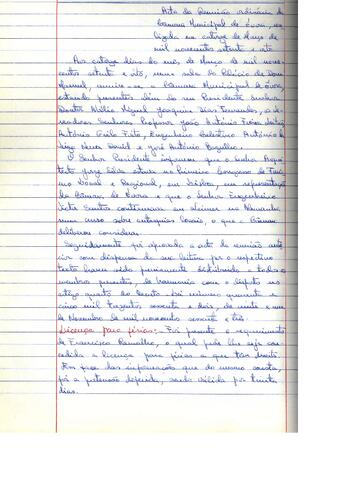 Acta da Reunião ordinária da
Câmara Municipal de Évora, rea
lizada em catorze de Março de
mil novecentos setenta e oito
Aos catorze dias do mês de Março de mil nove
centos setenta e oito, numa sala do Palácio de Dom
Manuel, reuniu-se a Câmara Municipal de Évora,
estando presentes além do seu Presidente senhor
Doutor Abílio Miguel Joaquim Dias Fernandes, os Ve
readores Senhores Professor João António
António Engenheiro Celestino António
David e José António
O Senhor Presidente informou que o senhor Arqui
tecto Jorge Silva estava no Primeiro Congresso de Turis
mo Social e Regional, em Lisboa, em representação
da Câmara de Évora e que o Senhor Engenheiro
Santos continuava em
num curso sobre autarquias locais, o que a Câmara
deliberou considerar.
Seguidamente foi aprovada a acta da reunião ante
rior com dispensa da sua leitura por o respectivo
texto haver sido previamente distribuído a todos os
membros presentes, de harmonia com o disposto no
artigo quarto do Decreto-Lei número quarenta e
cinco mil trezentos sessenta e dois, de vinte e um
de Novembro de mil novecentos sessenta e três.
Licença para férias:- Foi presente o requerimento
de Francisco Ramalho, o qual pede lhe seja con
cedida a licença para férias a que tem direito.
Em face das informações que do mesmo consta,
foi a pretensão deferida, sendo válida por trinta
dias.